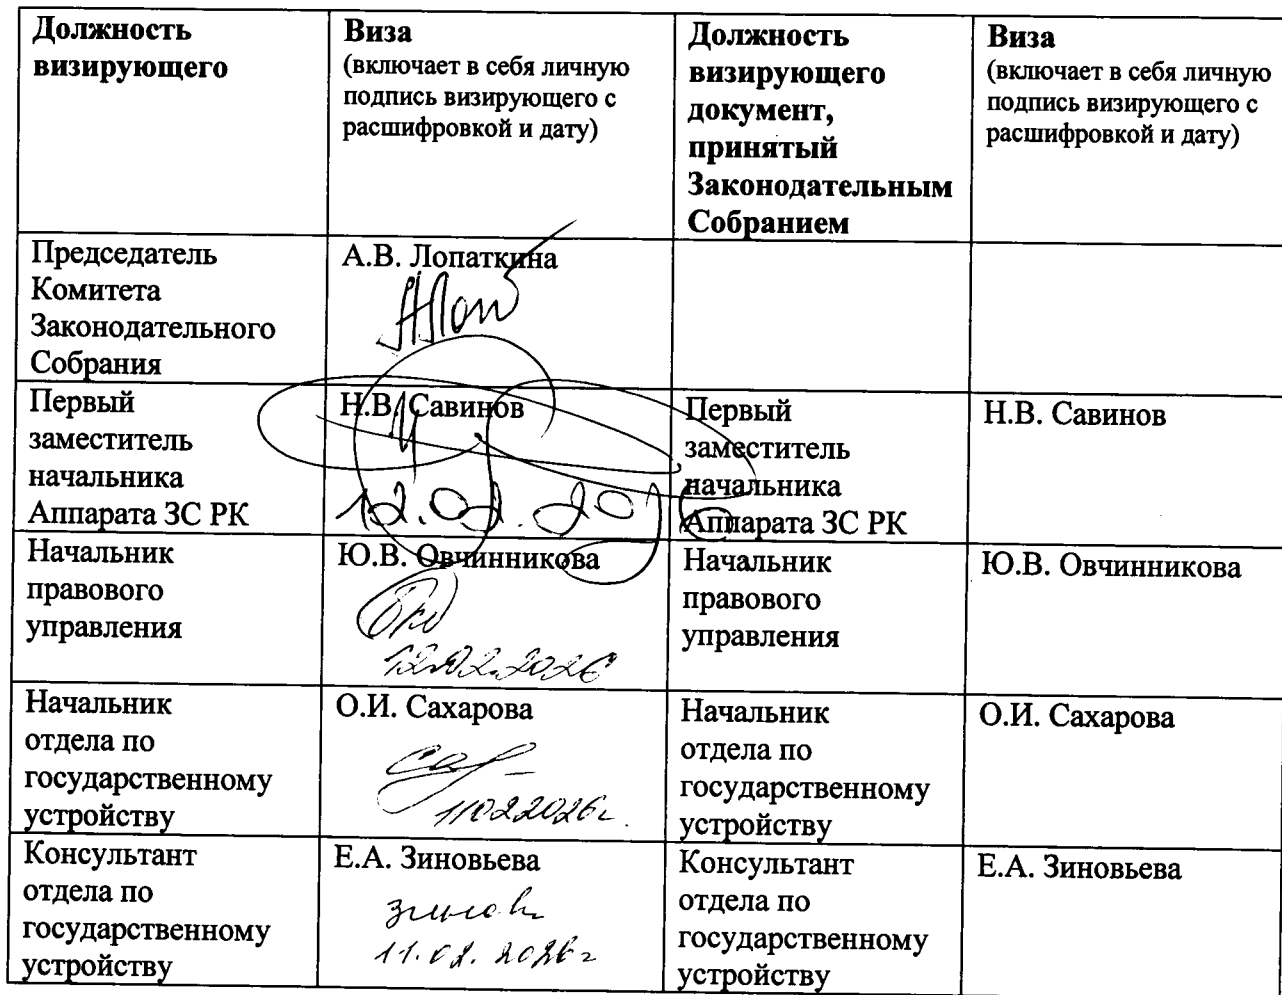 Должность
визирующего
Виза
(включает в себя личную
подпись визирующего с
расшифровкой и дату)
Должность
визирующего
документ,
принятый
Законодательным
Собранием
Виза
(включает в себя личную
подпись визирующего с
расшифровкой и дату)
Председатель
Комитета
Законодательного
Собрания
А.В. Лопаткина
Первый
заместитель
начальника
Аппарата ЗС РК
Н.В. Савинов
12.02.2026
Первый
заместитель
начальника
Аппарата ЗС РК
Н.В. Савинов
Начальник
правового
управления
Ю.В. Овчинникова
12.02.2026
Начальник
правового
управления
Ю.В. Овчинникова
Начальник
отдела по
государственному
устройству
О.И. Сахарова
11022026г.
Начальник
отдела по
государственному
устройству
О.И. Сахарова
Консультант
отдела по
государственному
устройству
Е.А. Зиновьева
11.02.2026г
Консультант
отдела по
государственному
устройству
Е.А. Зиновьева